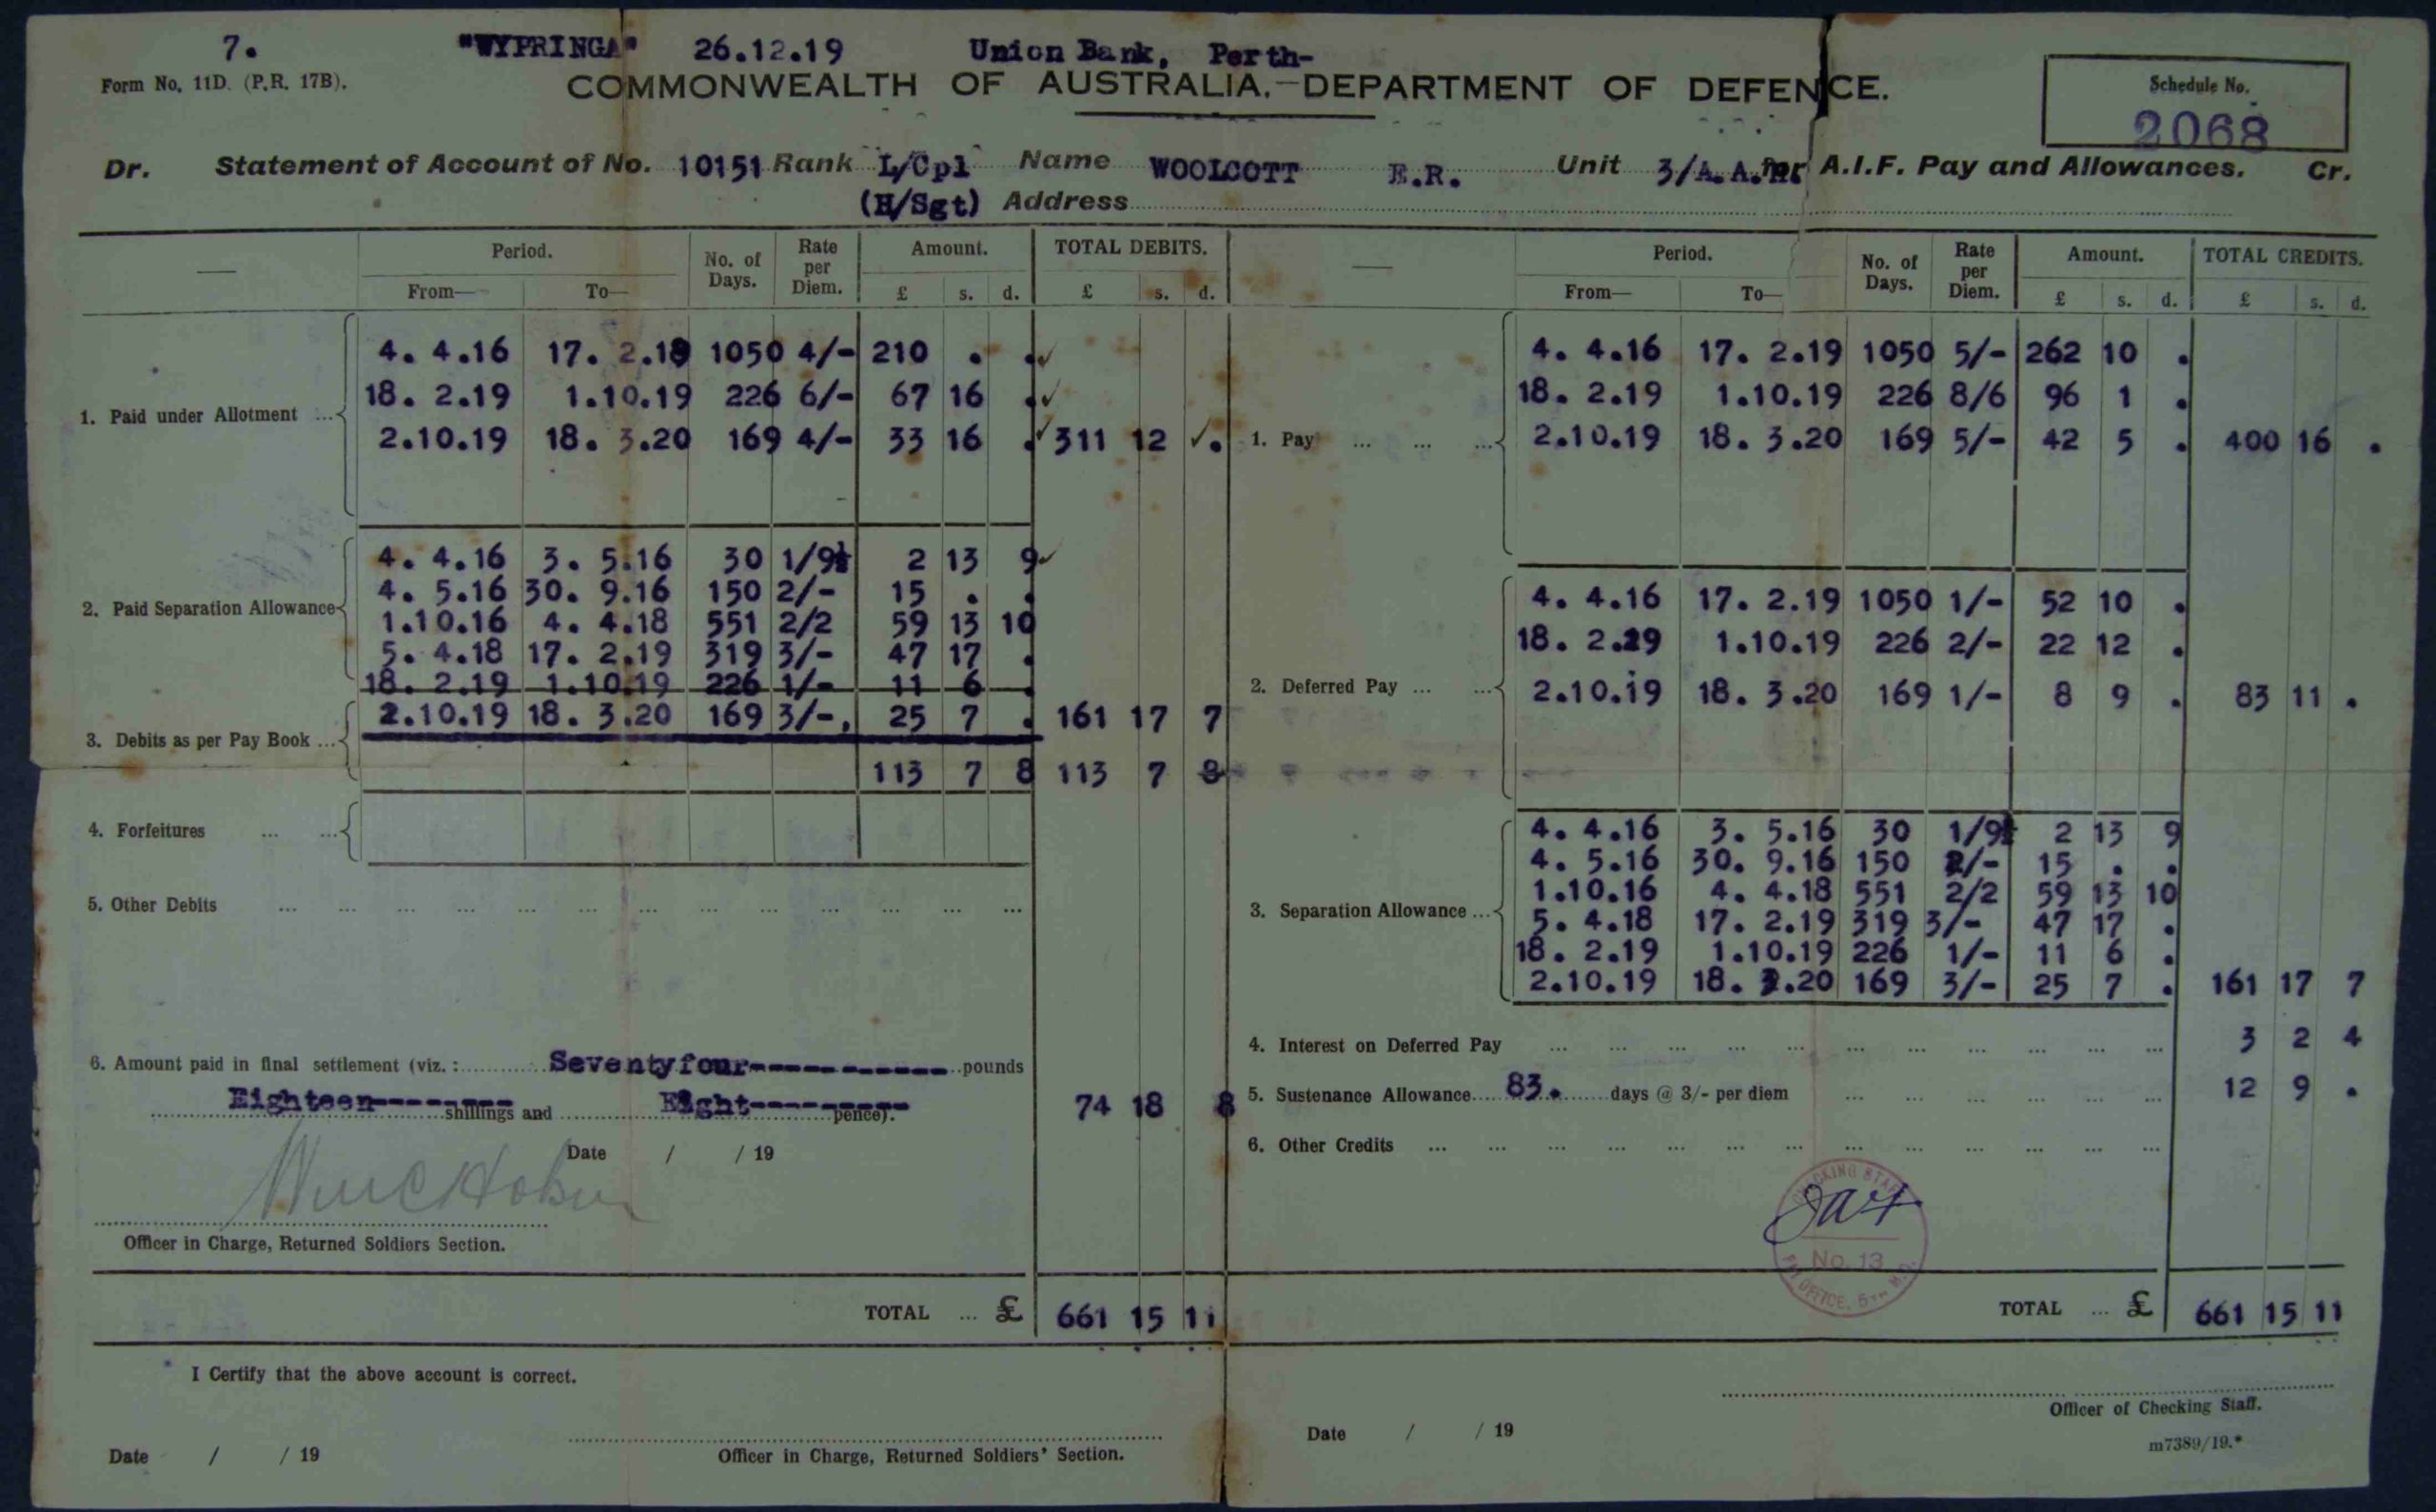 7. "WYPRINGA" 26.12.19 Union Bank, Perth-
Form No. 11D. (P.R. 17B).
COMMONWEALTH OF AUSTRALIA.—DEPARTMENT OF DEFENCE.
Schedule No.
2068
Dr. Statement of Account of No. 10151 Rank L/Cpl Name WOOLCOTT E.R. Unit 3/A.A.H. for A.I.F. Pay and Allowances. Cr.
(H/Sgt) Address
Period. No. of Days. Rate per Diem. Amount. TOTAL DEBITS.
From— To— £ s. d. £ s. d.
1. Paid under Allotment ...
4. 4.16 17. 2.19 1050 4/- 210 . .
18. 2.19 1.10.19 226 6/- 67 16 .
2.10.19 18. 3.20 169 4/- 33 16 . 311 12 .
2. Paid Separation Allowance
4. 4.16 3. 5.16 30 1/9½ 2 13 9
4. 5.16 30. 9.16 150 2/- 15 . .
1.10.16 4. 4.18 551 2/2 59 13 10
5. 4.18 17. 2.19 319 3/- 47 17 .
18. 2.19 1.10.19 226 1/- 11 6 .
2.10.19 18. 3.20 169 3/-. 25 7 . 161 17 7
3. Debits as per Pay Book ...
113 7 8 113 7 8
4. Forfeitures ... ...
5. Other Debits ... ... ... ... ... ... ... ... ... ... ... ... ...
6. Amount paid in final settlement (viz.: Seventyfour------------ pounds
Eighteen-------- shillings and Eight--------- pence). 74 18 8
Date / / 19
Officer in Charge, Returned Soldiers Section.
TOTAL ... £ 661 15 11
I Certify that the above account is correct.
Date / / 19
Officer in Charge, Returned Soldiers' Section.
Period. No. of Days. Rate per Diem. Amount. TOTAL CREDITS.
From— To— £ s. d. £ s. d.
1. Pay ... ... ...
4. 4.16 17. 2.19 1050 5/- 262 10 .
18. 2.19 1.10.19 226 8/6 96 1 .
2.10.19 18. 3.20 169 5/- 42 5 . 400 16 .
2. Deferred Pay ... ...
4. 4.16 17. 2.19 1050 1/- 52 10 .
18. 2.19 1.10.19 226 2/- 22 12 .
2.10.19 18. 3.20 169 1/- 8 9 . 83 11 .
3. Separation Allowance ...
4. 4.16 3. 5.16 30 1/9½ 2 13 9
4. 5.16 30. 9.16 150 2/- 15 . .
1.10.16 4. 4.18 551 2/2 59 13 10
5. 4.18 17. 2.19 319 3/- 47 17 .
18. 2.19 1.10.19 226 1/- 11 6 .
2.10.19 18. 3.20 169 3/- 25 7 . 161 17 7
4. Interest on Deferred Pay ... ... ... ... ... ... ... ... ... ... ... 3 2 4
5. Sustenance Allowance 83. days @ 3/- per diem ... ... ... ... ... ... 12 9 .
6. Other Credits ... ... ... ... ... ... ... ... ... ... ... ... ...
CHECKING STAFF
No. 13
PAY OFFICE, 5TH M.D.
TOTAL ... £ 661 15 11
Date / / 19
Officer of Checking Staff.
m7389/19.*